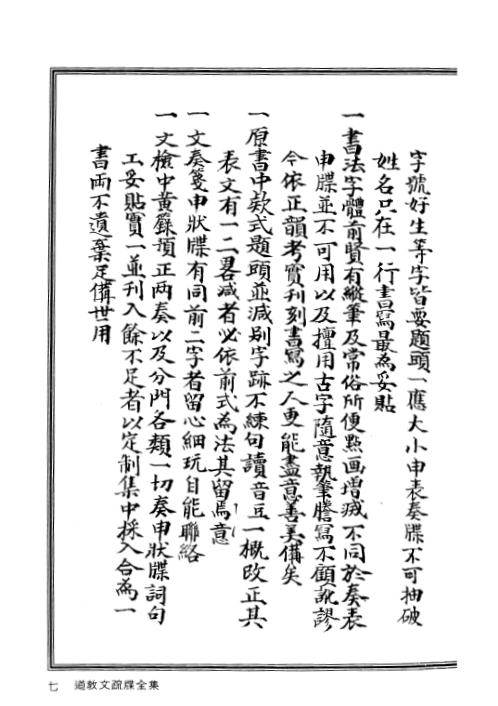 字號好生等字皆要題頭一應大小申表奏牒不可抽破
姓名只在一行書寫最為妥貼
一書法字體前賢有縱筆及常俗所便點画增减不同於奏表
申牒並不可用以及擅用古字隨意執筆謄寫不顧訛謬
今依正韻考實刊刻書寫之人更能盡意善美俻矣
一原書中欵式題頭並减别字跡不練句讀音豆一概改正其
表文有一二畧减者必依前式為法其留焉意
一文奏箋申狀牒有同前二字者留心細玩自能聯絡
一文檢中黃籙頊正两奏以及分門各類一切奏申狀牒詞句
工妥貼實一並刊入餘不足者以定制集中採入合為一
書两不遺棄足俻世用
七 道教文疏牒全集